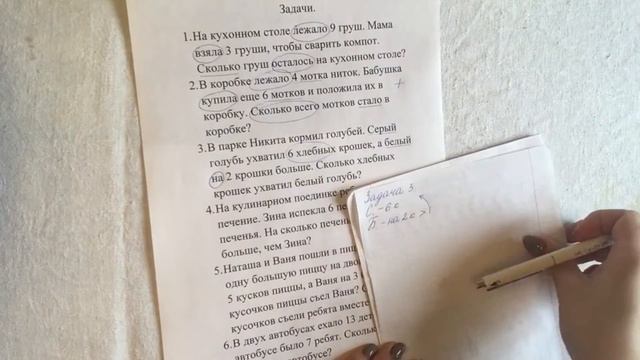 Задачи.
1.На кухонном столе лежало 9 груш. Мама
взяла 3 груши, чтобы сварить компот.
Сколько груш осталось на кухонном столе?
2.В коробке лежало 4 мотка ниток. Бабушка
купила еще 6 мотков и положила их в
коробку. Сколько всего мотков стало в
коробке?
+
3.В парке Никита кормил голубей. Серый
голубь ухватил 6 хлебных крошек, а белый
на 2 крошки больше. Сколько хлебных
крошек ухватил белый голубь?
4.На кулинарном поединке
печение. Зина испекла 6
печенья. На сколько
больше, чем Зина?
5.Наташа и Ваня пошли в
одну большую пиццу на
5 кусков пиццы, а Ваня на 3
кусочков пиццы съел Ваня?
кусочков съели ребята вместе
6.В двух автобусах ехало 13
автобусе было 7 ребят.
автобусе?
Задача 3
С - 6 к
Б - на 2 к >